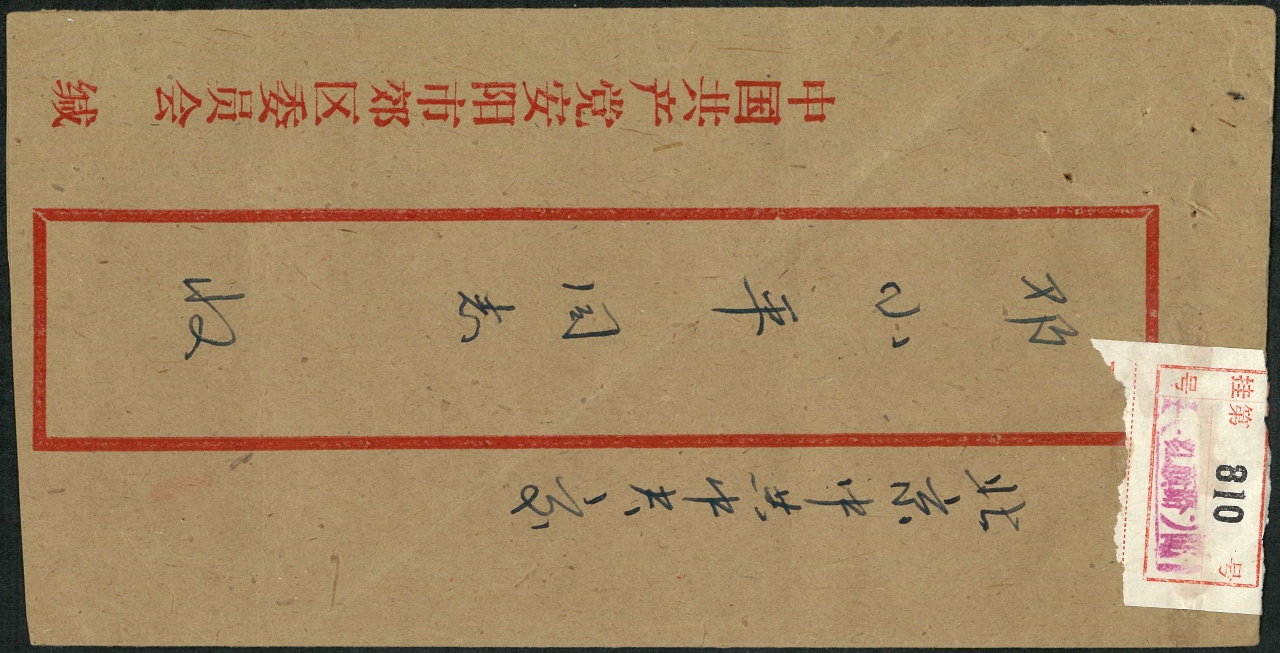 北京中共中央
邓小平同志 收
中国共产党安阳市郊区委员会 缄
挂号
第 810 号
红旗路